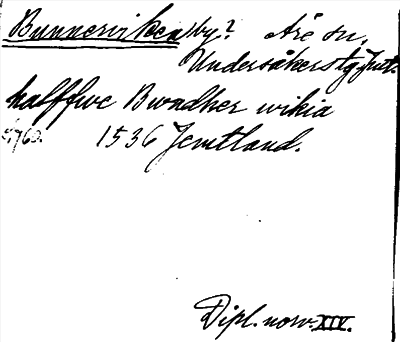 Bunnerviken by? Åre sn,
Undersåkers tg Jmt.
halffwe Bwndher wikia
1536 Jemtland.
Dipl. norv. XIV.